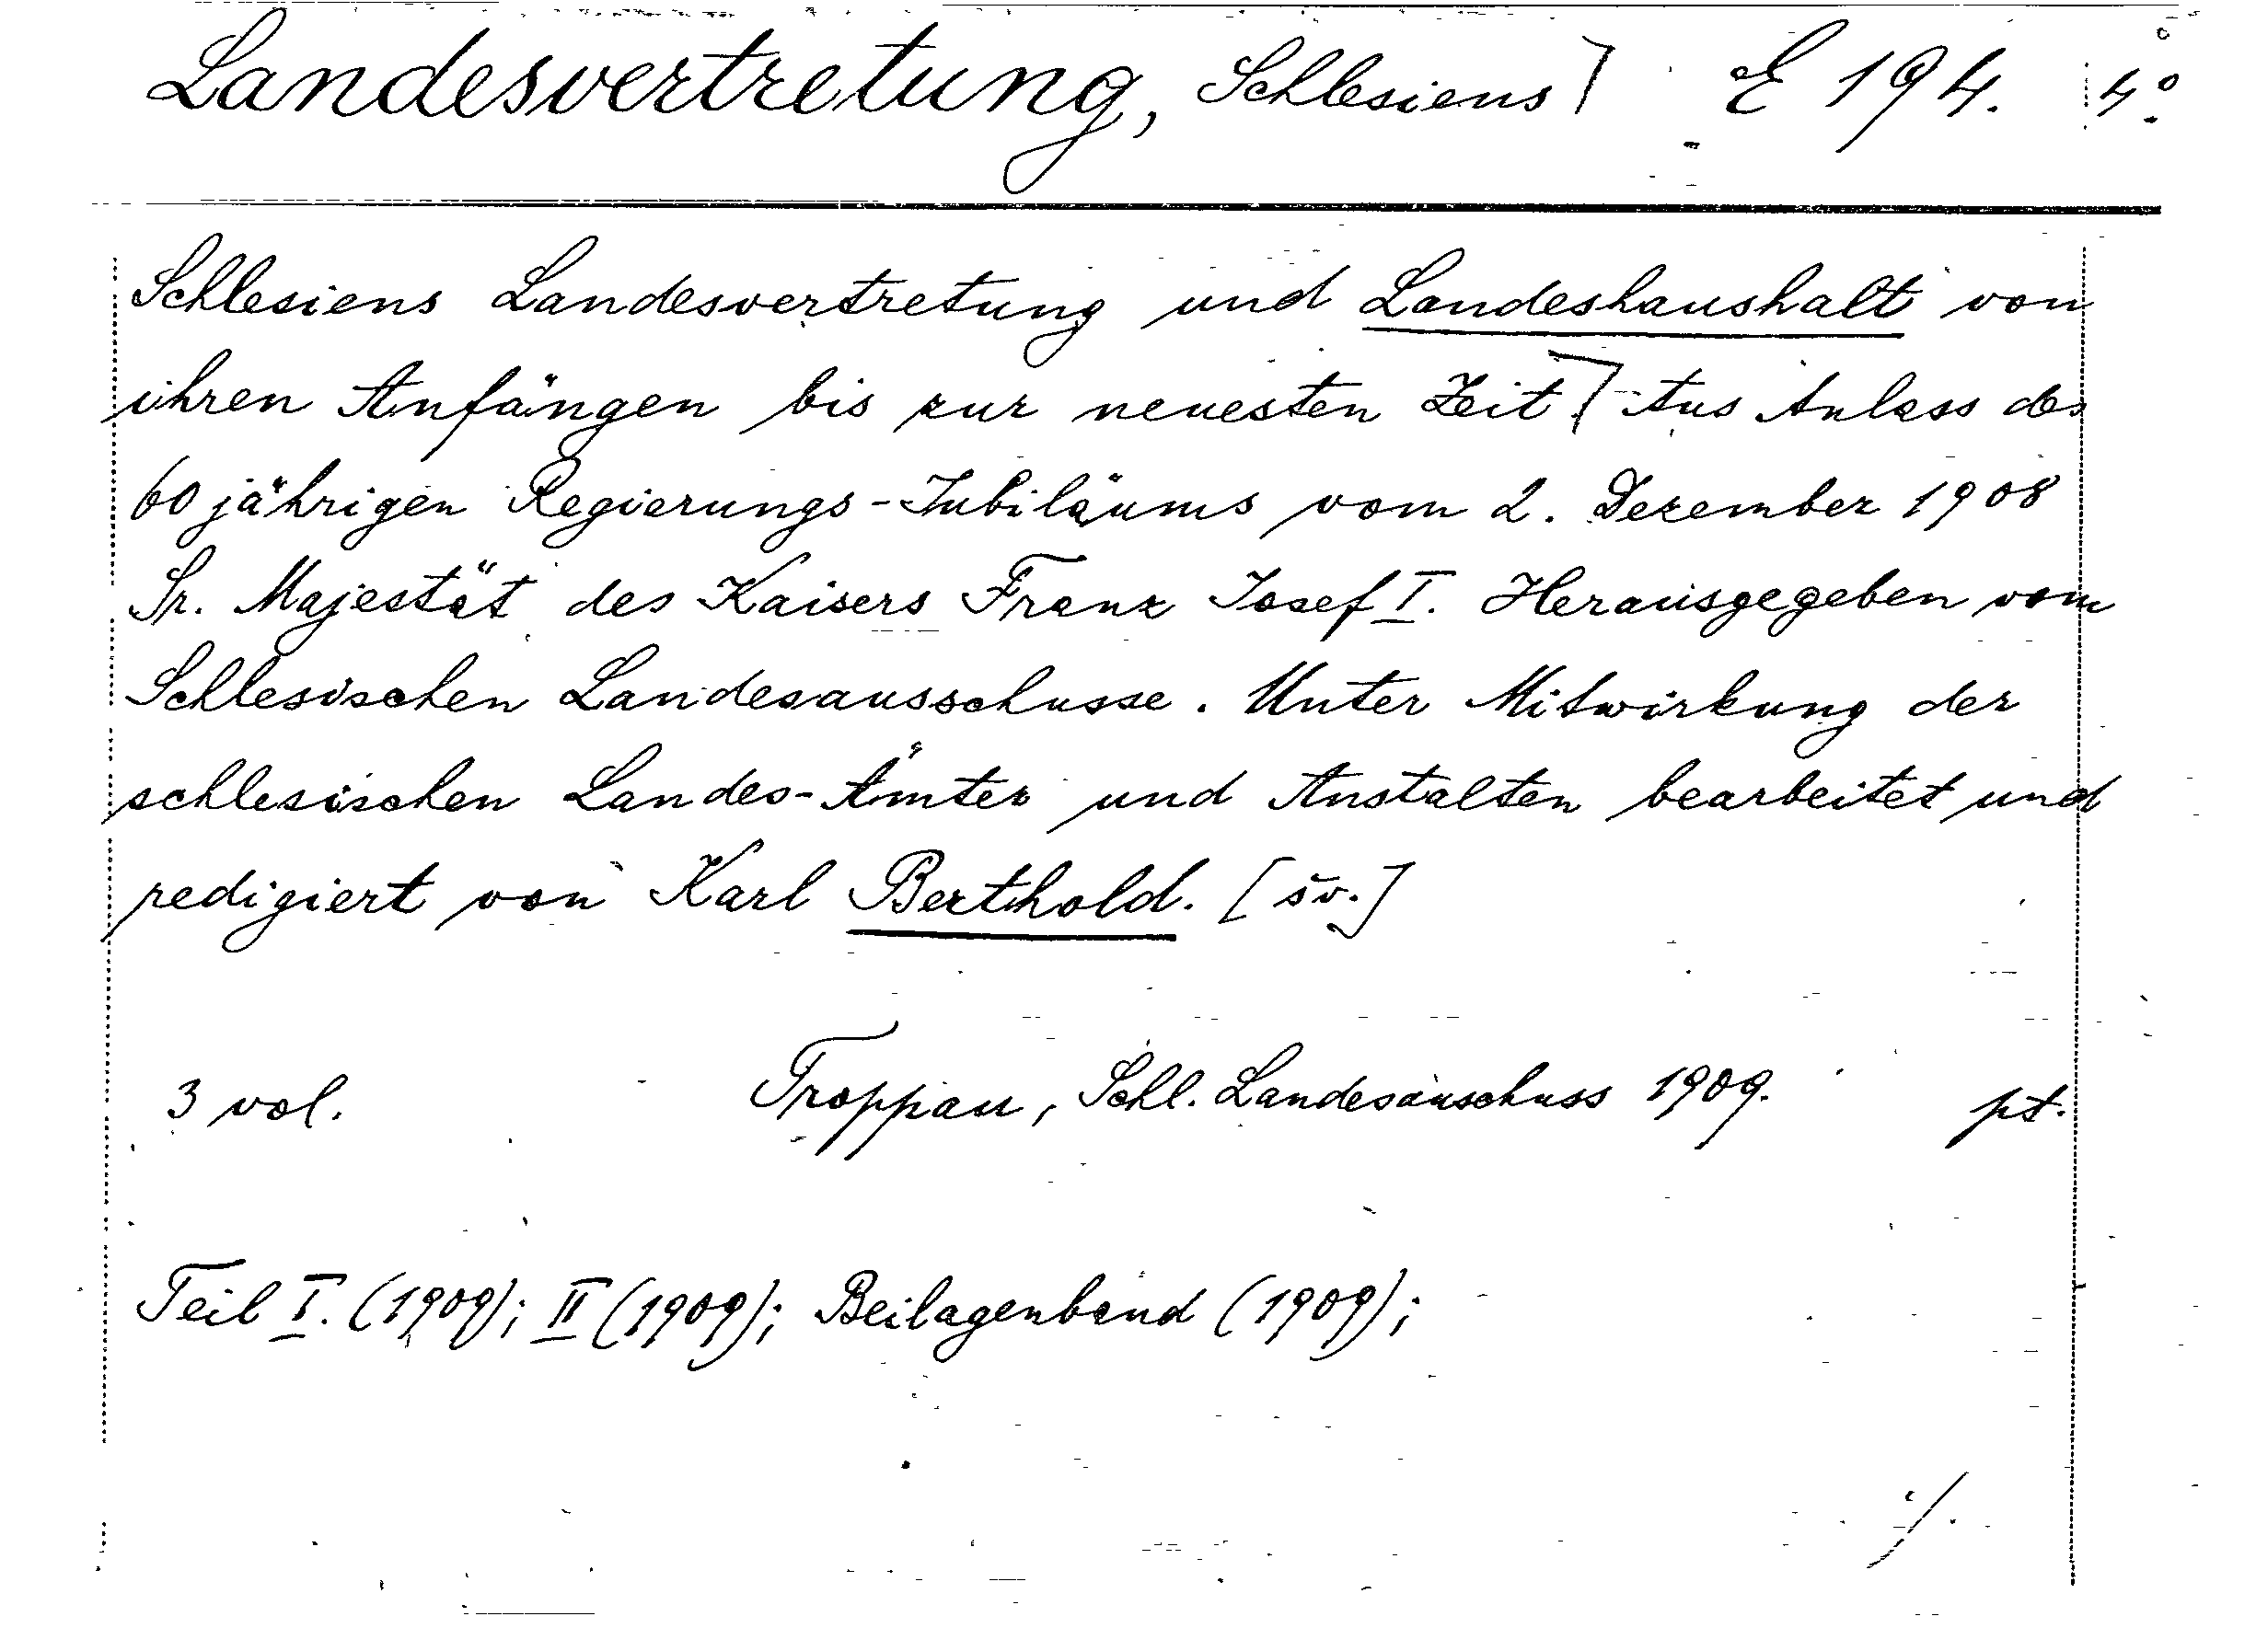 Landesvertretung, Schlesiens] E 194. 4°.
Schlesiens Landesvertretung und Landeshaushalt von
ihren Anfängen bis zur neuesten Zeit.] Aus Anlass des
60 jährigen Regierungs-Jubiläums vom 2. Dezember 1908
Sr. Majestät des Kaisers Franz Josef I. Herausgegeben vom
Schlesischen Landesausschusse. Unter Mitwirkung der
schlesischen Landes-Ämter und Anstalten bearbeitet und
redigiert von Karl Berthold. [sv.]
3 vol. Troppau, Schl. Landesauschuss 1909. pt.
Teil I. (1909); II (1909); Beilagenband (1909);
./.